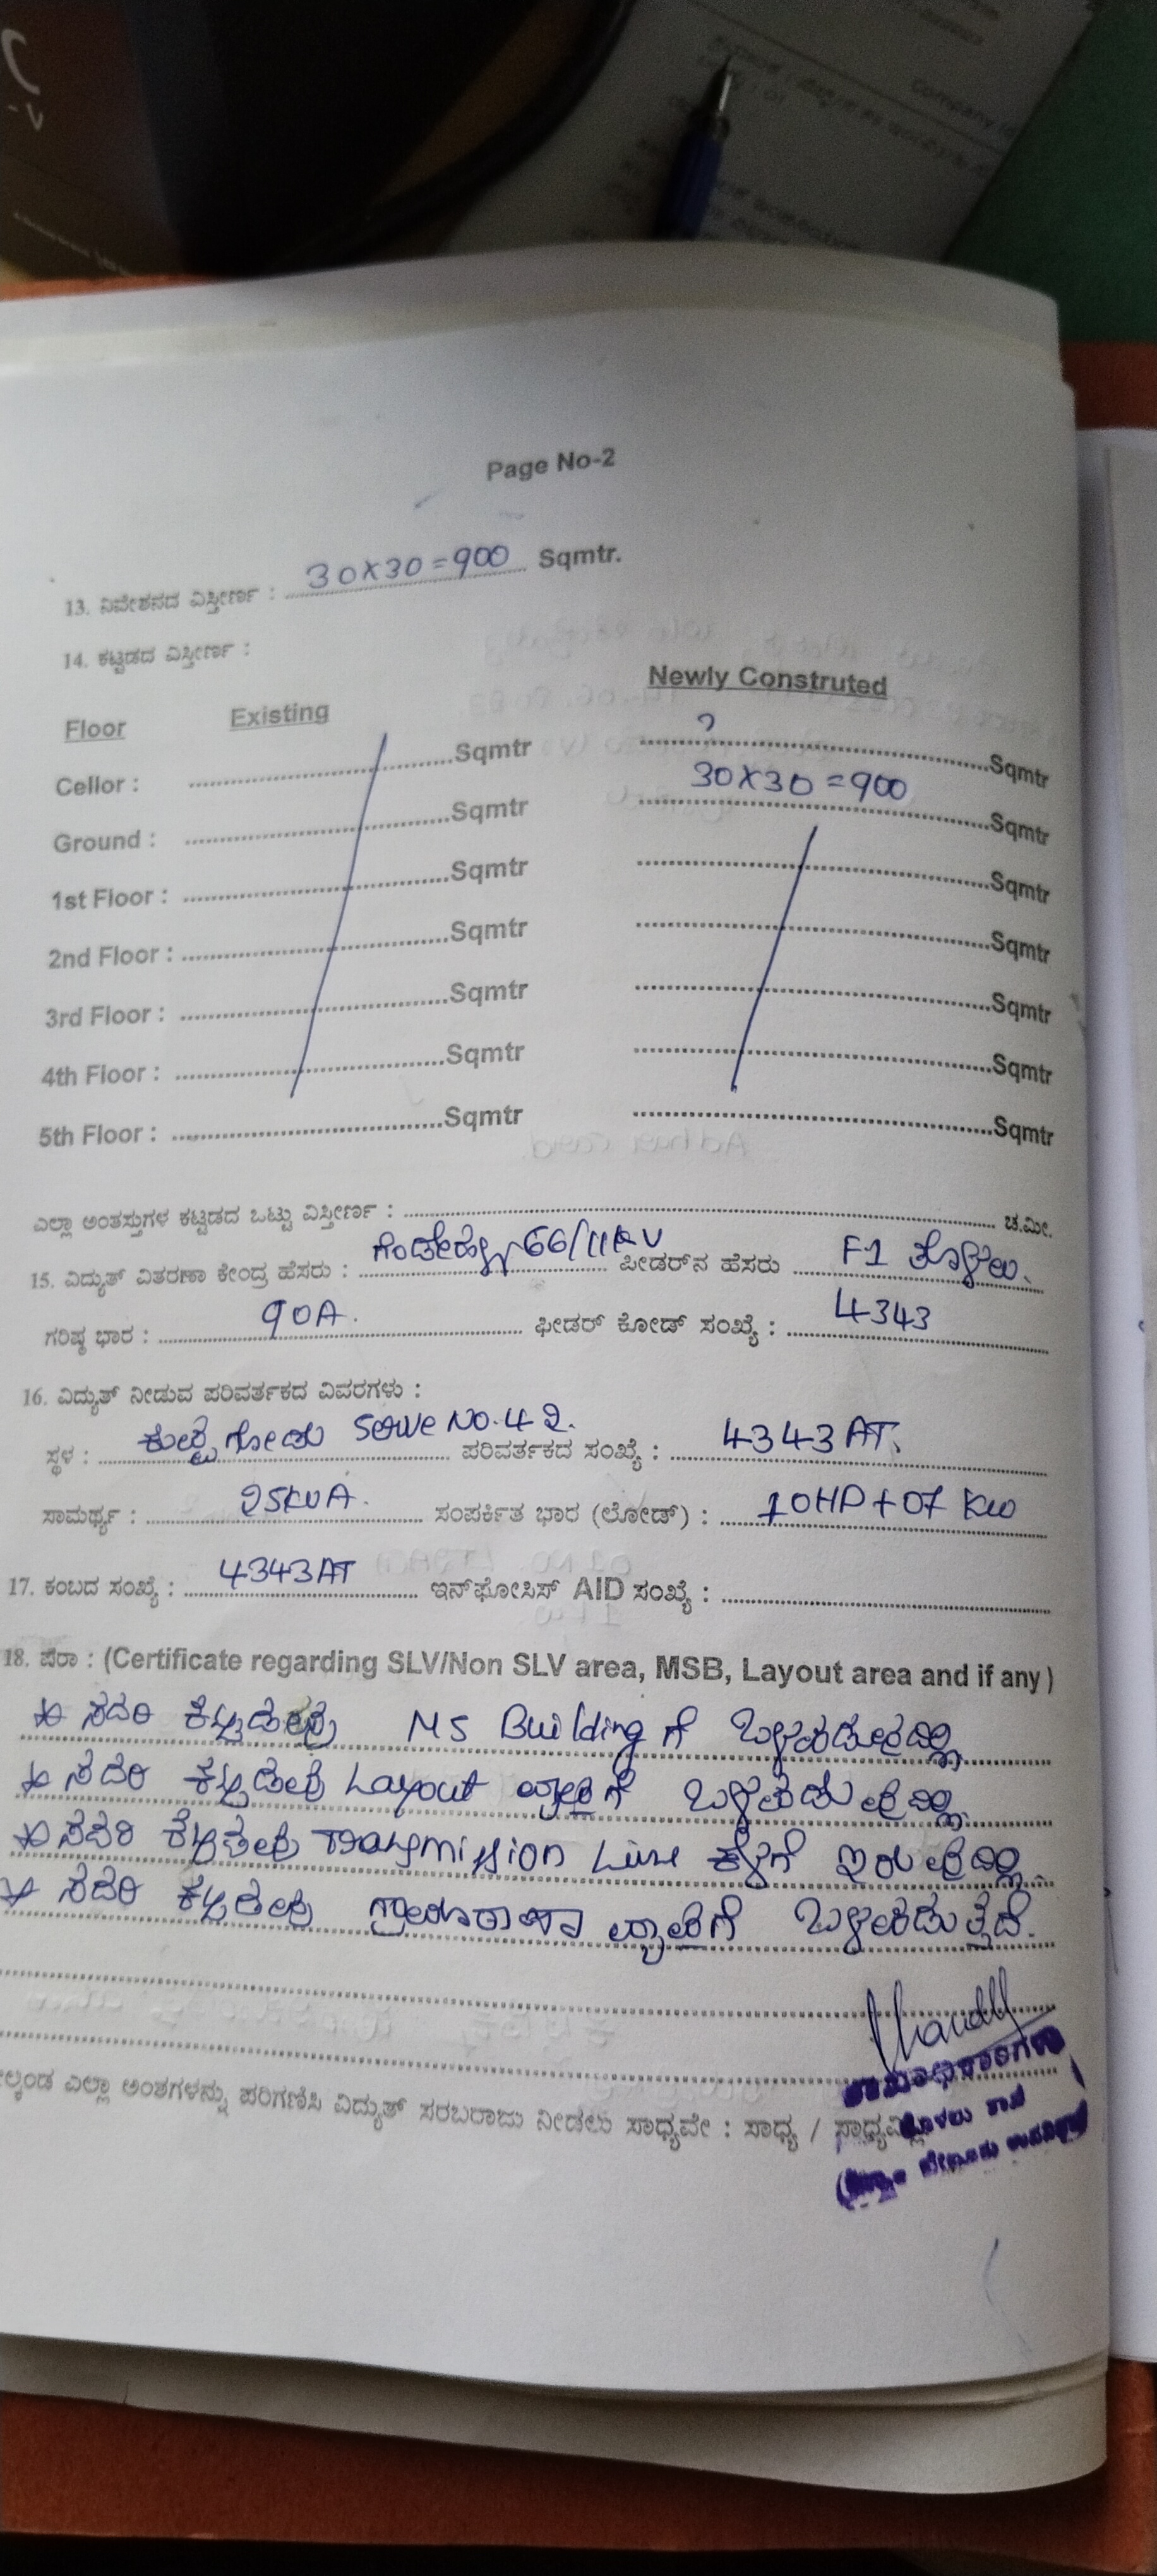 Company
Page No-2
13. ನಿವೇಶನದ ವಿಸ್ತೀರ್ಣ : 30X30=900 Sqmtr.
14. ಕಟ್ಟಡದ ವಿಸ್ತೀರ್ಣ :
Floor Existing Newly Construted
Cellor : Sqmtr Sqmtr
Ground : Sqmtr 30X30=900 Sqmtr
1st Floor : Sqmtr Sqmtr
2nd Floor : Sqmtr Sqmtr
3rd Floor : Sqmtr Sqmtr
4th Floor : Sqmtr Sqmtr
5th Floor : Sqmtr Sqmtr
ಎಲ್ಲಾ ಅಂತಸ್ತುಗಳ ಕಟ್ಟಡದ ಒಟ್ಟು ವಿಸ್ತೀರ್ಣ : ಚ.ಮೀ.
15. ವಿದ್ಯುತ್ ವಿತರಣಾ ಕೇಂದ್ರ ಹೆಸರು : 66/11KV ಪೀಡರ್‌ನ ಹೆಸರು F1
ಗರಿಷ್ಠ ಭಾರ : 90A. ಫೀಡರ್ ಕೋಡ್ ಸಂಖ್ಯೆ : 4343
16. ವಿದ್ಯುತ್ ನೀಡುವ ಪರಿವರ್ತಕದ ವಿವರಗಳು :
ಸ್ಥಳ : No.42. ಪರಿವರ್ತಕದ ಸಂಖ್ಯೆ : 4343AT.
ಸಾಮರ್ಥ್ಯ : 25KVA. ಸಂಪರ್ಕಿತ ಭಾರ (ಲೋಡ್) : 10HP+07 KW
17. ಕಂಬದ ಸಂಖ್ಯೆ : 4343AT ಇನ್‌ಫೋಸಿಸ್ AID ಸಂಖ್ಯೆ :
18. ಷೆರಾ : (Certificate regarding SLV/Non SLV area, MSB, Layout area and if any )
ಸದರಿ ಕಟ್ಟಡವು MS Building ಗೆ ಒಳಪಡುವುದಿಲ್ಲ
ಸದರಿ ಕಟ್ಟಡವು Layout ವ್ಯಾಪ್ತಿಗೆ ಒಳಪಡುವುದಿಲ್ಲ.
ಸದರಿ ಕಟ್ಟಡವು Transmission Line ಕೆಳಗೆ ಇರುವುದಿಲ್ಲ.
ಸದರಿ ಕಟ್ಟಡವು ಗ್ರಾಮಠಾಣಾ ವ್ಯಾಪ್ತಿಗೆ ಒಳಪಡುತ್ತದೆ.
ಎಲ್ಲಾ ಅಂಶಗಳನ್ನು ಪರಿಗಣಿಸಿ ವಿದ್ಯುತ್ ಸರಬರಾಜು ನೀಡಲು ಸಾಧ್ಯವೇ : ಸಾಧ್ಯ /